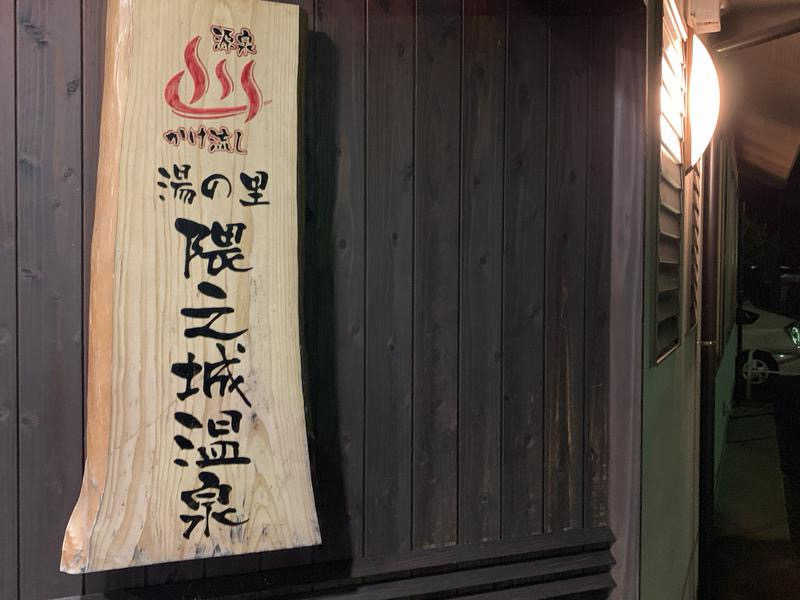 源泉
かけ流し
湯の里
隈之城温泉